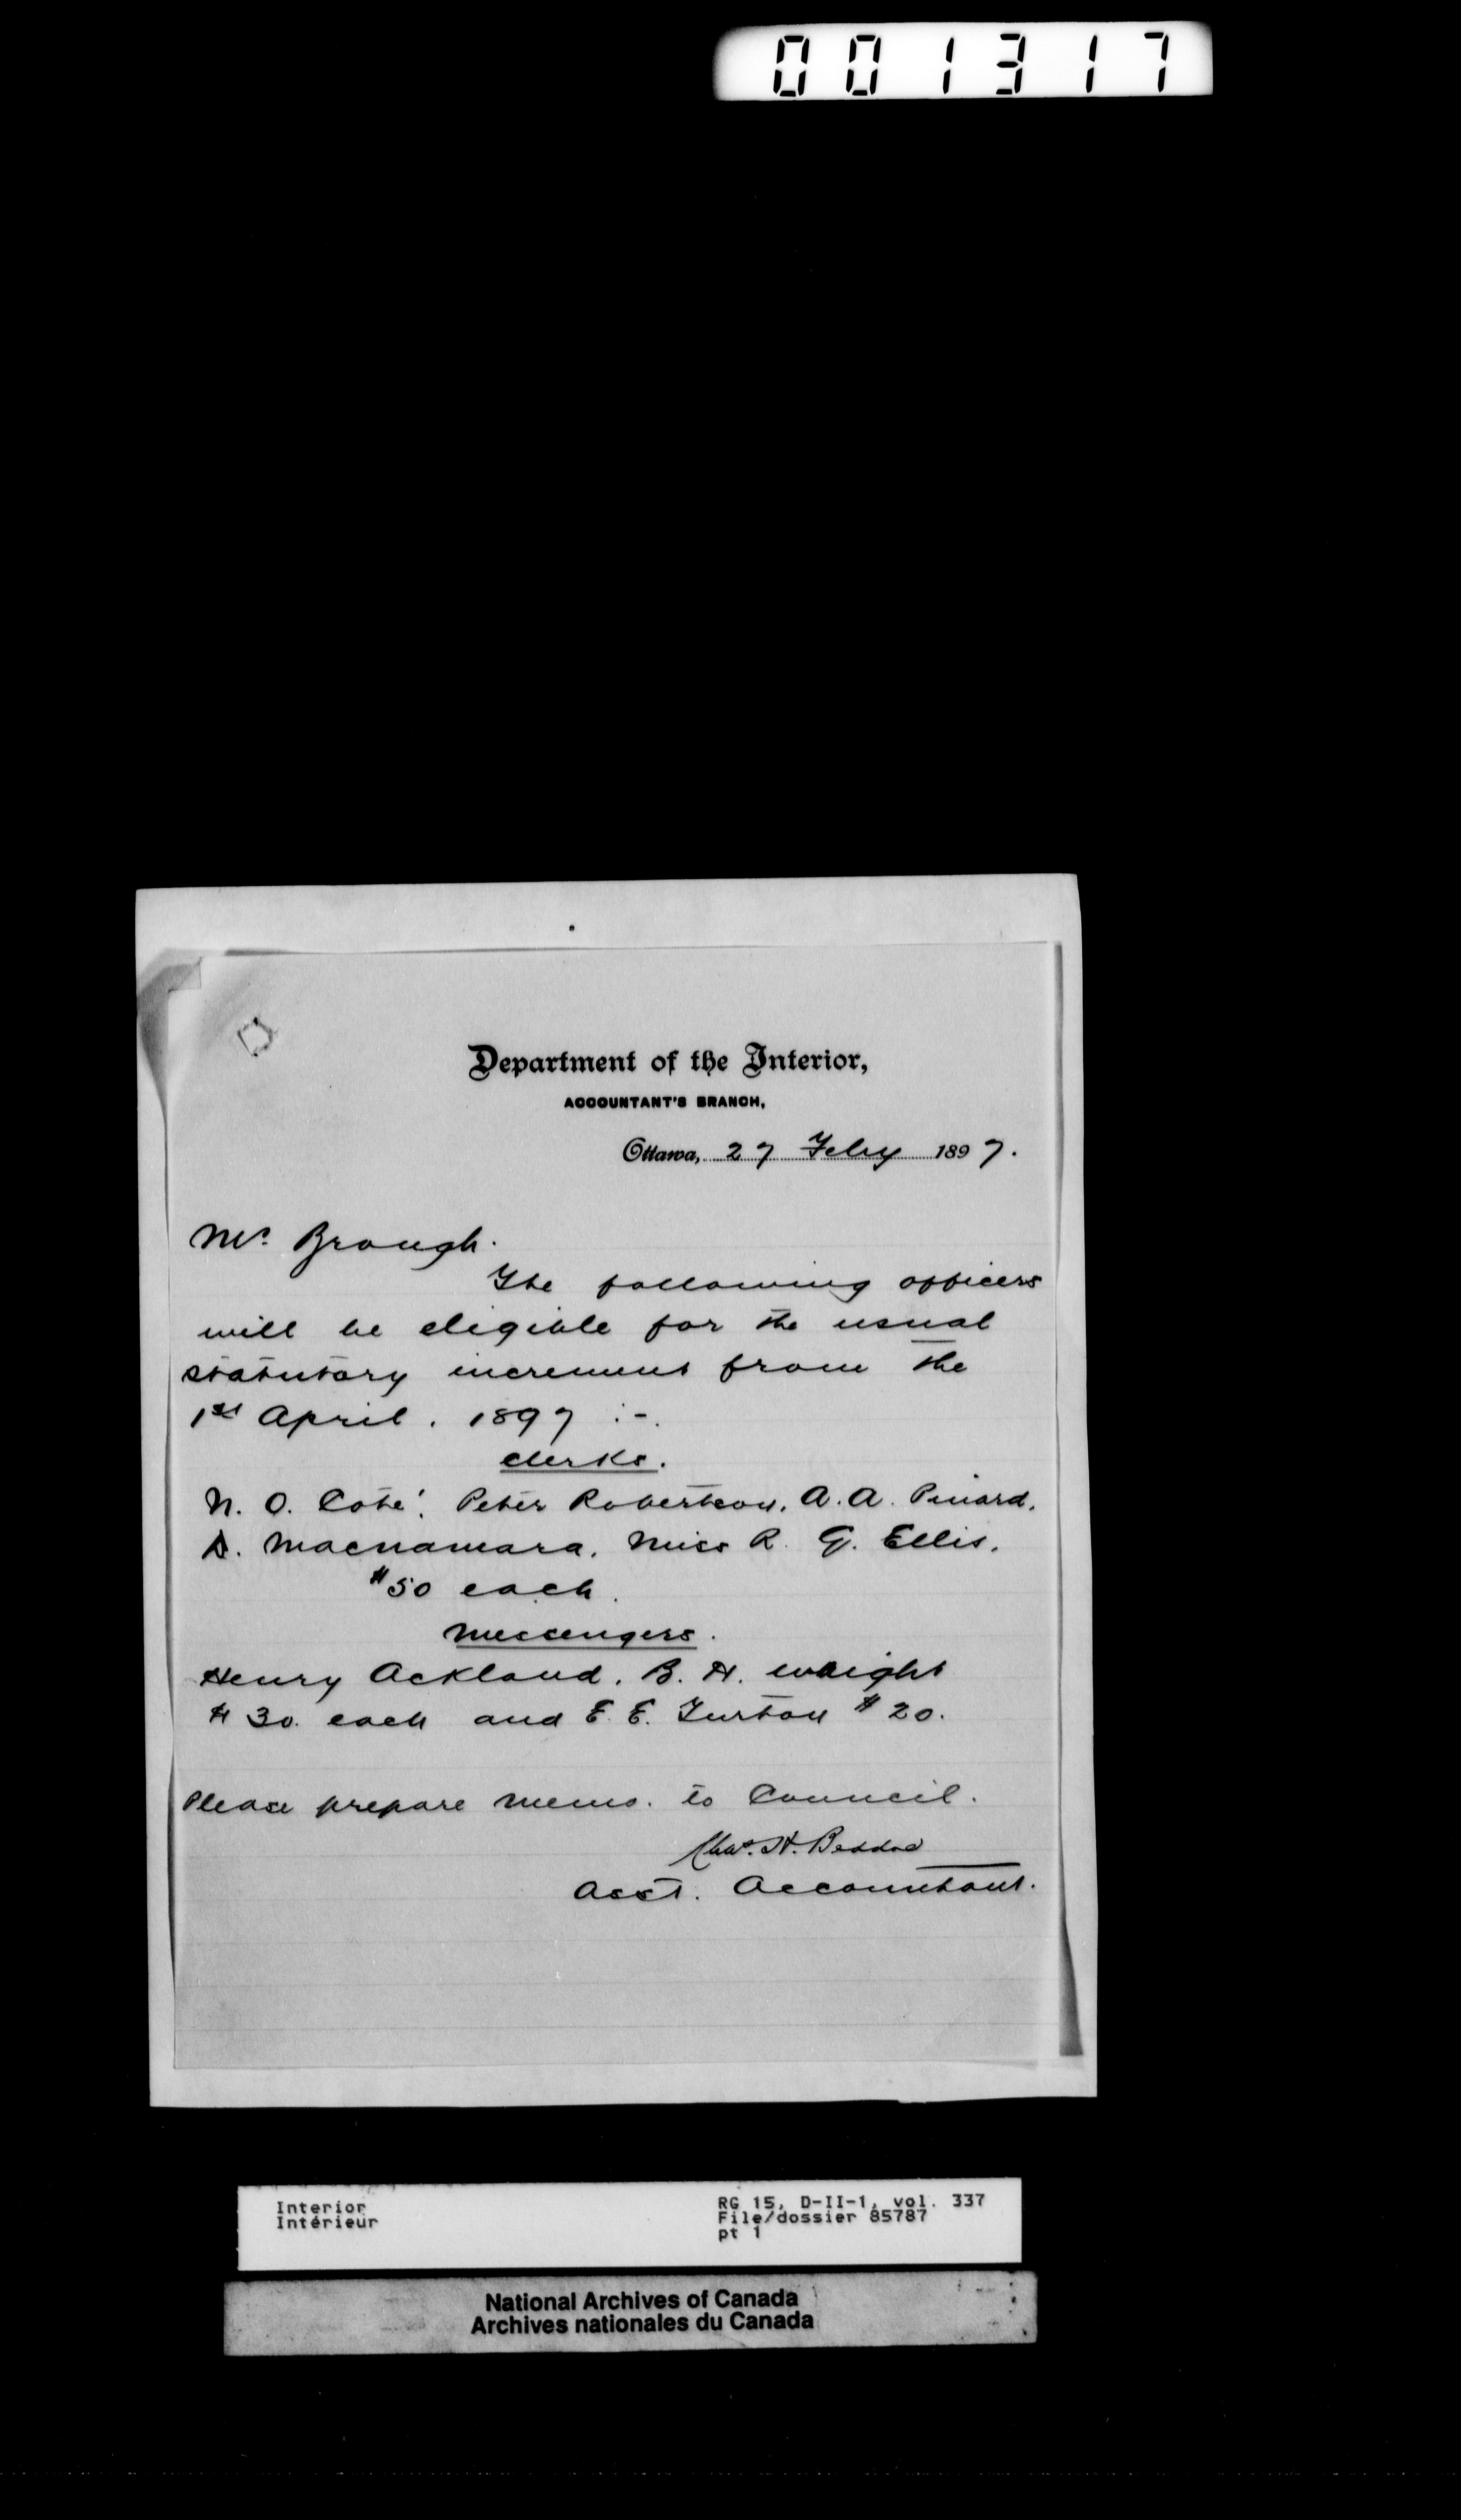 001317
Department of the Interior,
ACCOUNTANT'S BRANCH,
Ottawa, 27 Feby 1897.
Mr. Brough.
The following officers
will be eligible for the usual
statutory increment from the
1st April. 1897 :-.
Clerks.
N. O. Coté. Peter Robertson. A. A. Pinard.
D. Macnamara. Miss R. G. Ellis.
$50 each.
Messengers.
Henry Ackland. B. H. Wright
$30. each and E. E. Turton $20.
Please prepare memo. to Council.
Chas. H. Beddoe
Asst. Accountant.
Interior
Intérieur
RG 15, D-II-1, vol. 337
File/dossier 85787
pt 1
National Archives of Canada
Archives nationales du Canada